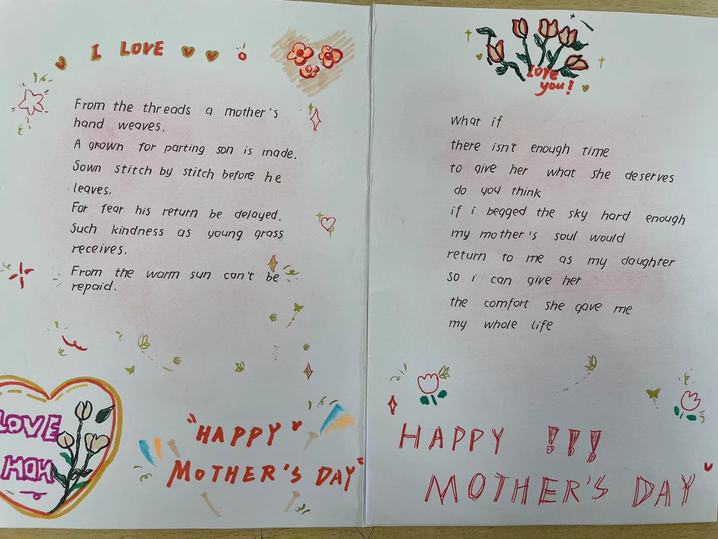 I LOVE
From the threads a mother's
hand weaves.
A grown for parting son is made.
Sown stitch by stitch before he
leaves.
For fear his return be delayed.
Such kindness as young grass
receives.
From the warm sun can't be
repaid.
LOVE
MOM
"HAPPY
MOTHER'S DAY"
love
you!
what if
there isn't enough time
to give her what she deserves
do you think
if i begged the sky hard enough
my mother's soul would
return to me as my daughter
so i can give her
the comfort she gave me
my whole life
HAPPY !!!
MOTHER'S DAY